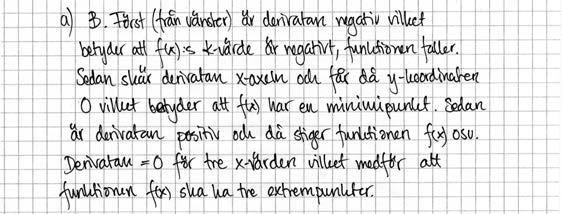 a) B. Först (från vänster) är derivatan negativ vilket
betyder att f(x):s k-värde är negativt, funktionen faller.
Sedan skär derivatan x-axeln och får då y-koordinaten
0 vilket betyder att f(x) har en minimipunkt. Sedan
är derivatan positiv och då stiger funktionen f(x) osv.
Derivatan = 0 för tre x-värden vilket medför att
funktionen f(x) ska ha tre extrempunkter.